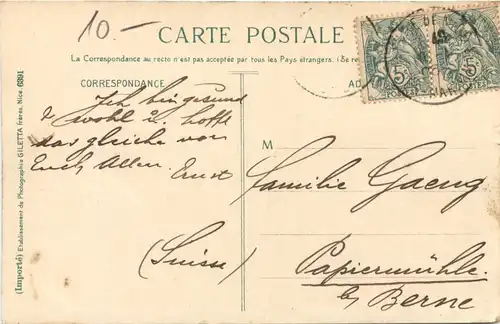 10.-
CARTE POSTALE
La Correspondance au recto n'est pas acceptée par tous les Pays étrangers. (Se re
CORRESPONDANCE
AD
Ich bin gesund
& wohl u. hoffe
das gleiche von
Euch Allen.
Ernst
M
Familie Gaeng
(Suisse)
Papiermühle
by Berne
5
5
(Importé) Etablissement de Photographie GILETTA frères, Nice. 6391